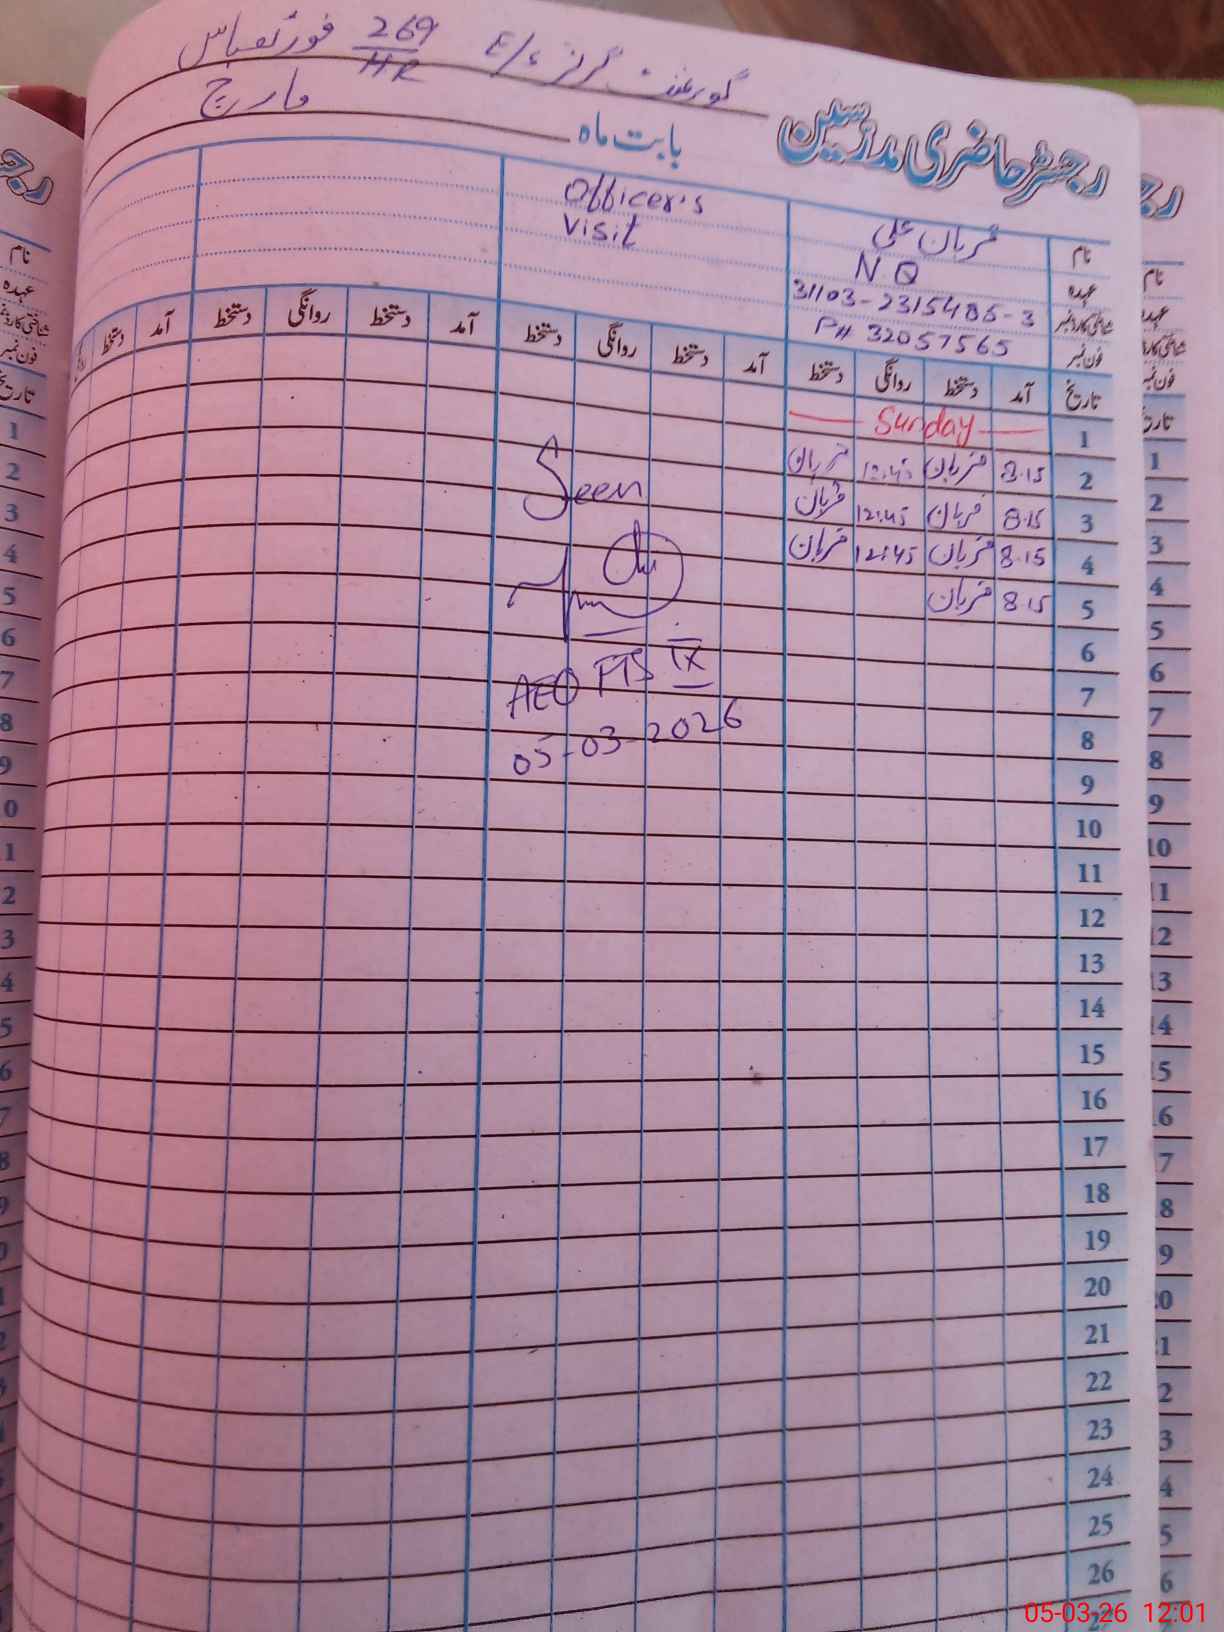 گورنمنٹ گرلز E/S 269/HR فورٹعباس
رجسٹر حاضری مدرسین
بابت ماہ مارچ
نام قربان علی Officer's Visit
عہدہ N Q
شناختی کارڈ نمبر 31103-2315485-3
فون نمبر P# 32057565
تاریخ آمد دستخط روانگی دستخط آمد دستخط روانگی دستخط آمد دستخط روانگی دستخط آمد دستخط
1 Sunday
2 8.15 قربان 12:45 قربان
3 8.15 قربان 12:45 قربان
4 8.15 قربان 12:45 قربان
5 8.15 قربان
6
7
8
9
10
11
12
13
14
15
16
17
18
19
20
21
22
23
24
25
26
27
Seen
AEO FTS IX
05-03-2026
05-03-26 12:01